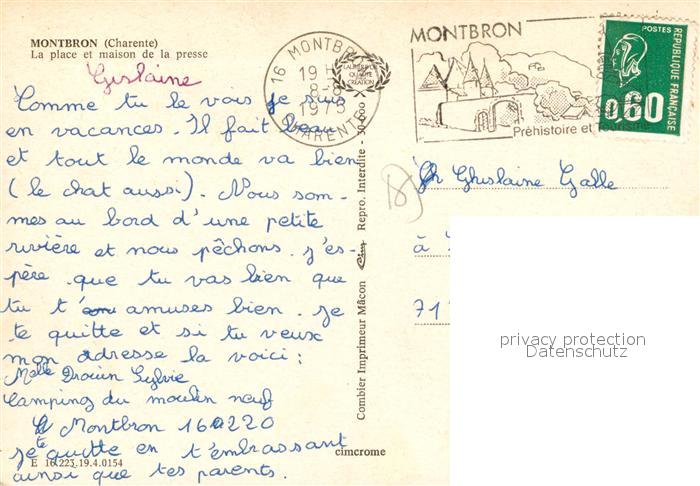 MONTBRON (Charente)
La place et maison de la presse
Gislaine
Comme tu le vois je suis
en vacances. Il fait beau
et tout le monde va bien
(le chat aussi). Nous som-
mes au bord d'une petite
rivière et nous pêchons. j'es-
père que tu vas bien que
tu t'amuses bien. je
te quitte et si tu veux
mon adresse la voici:
Melle Drouin Sylvie
Camping du moulin neuf
Montbron 16220
je te quitte en t'embrassant
ainsi que tes parents.
E 16.223.19.4.0154
cimcrome
Combier Imprimeur Mâcon Cim Repro. Interdite - 50.600
16 MONTBRON
19 H
8-8
1975
CHARENTE
LAURÉAT DE LA QUALITÉ CRÉATION
MONTBRON
Préhistoire et Tourisme
POSTES
RÉPUBLIQUE FRANÇAISE
0,60
Ghislaine Galle
à
71
privacy protection
Datenschutz